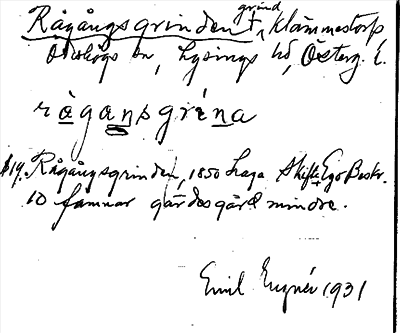 Rågångsgrinden, grind f. Klämmestorp
Ödeshögs sn, Lysings hd, Österg. l.
rågansgrina
§19. Rågångsgrinden, 1850 Laga Skifte Ego Beskr.
10 famnar gärdesgård mindre.
Emil 1931